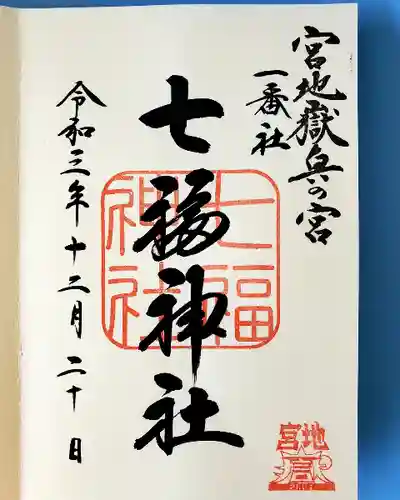 宮地嶽奥の宮
一番社
七福神社
七福
神社
令和三年十二月二十日
宮地